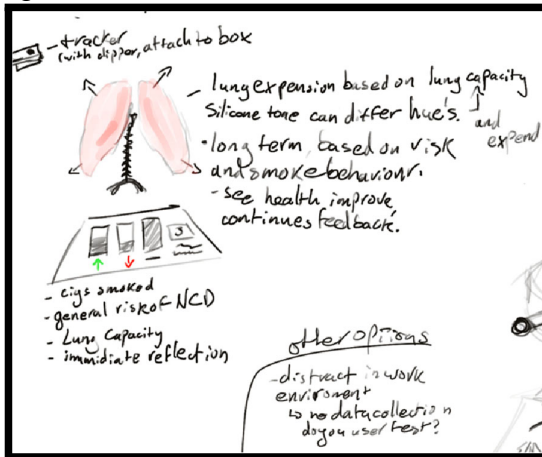 - tracker
(with clipper, attach to box
- lung expension based on lung capacity
Silicone tone can differ hue's. and
expend
- long term, based on risk
and smoke behaviour.
- see health improve
continues feedback.
- cigs smoked
- general risk of NCD
- Lung Capacity
- immidiate reflection
other options
- distract in work
enviroment
↳ no data collection
do you user test?